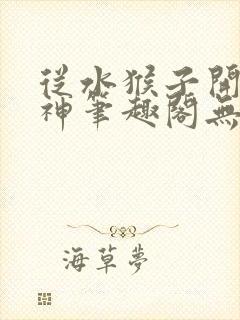 從水猴子開
神筆趣閣無
海草夢